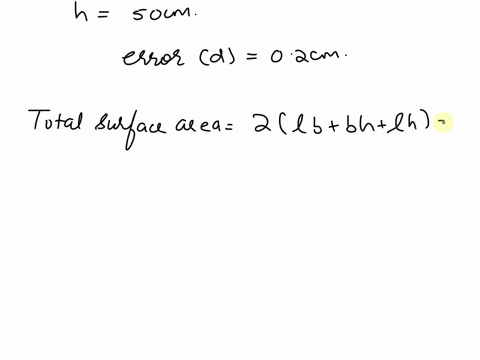 h = 50cm.
error (d) = 0.2cm.
Total surface area = 2(lb+bh+lh) -